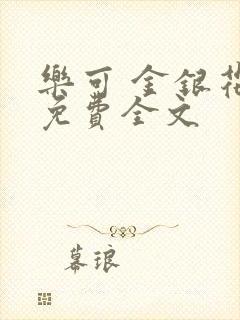 樂可 金銀花
免費全文
幕琅